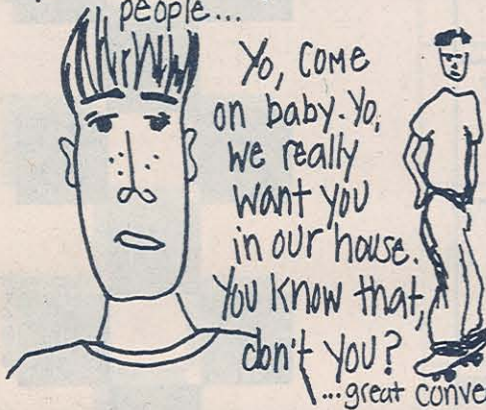 people...
Yo, come
on baby. Yo,
we really
want you
in our house.
You know that,
don't you?
...great conve